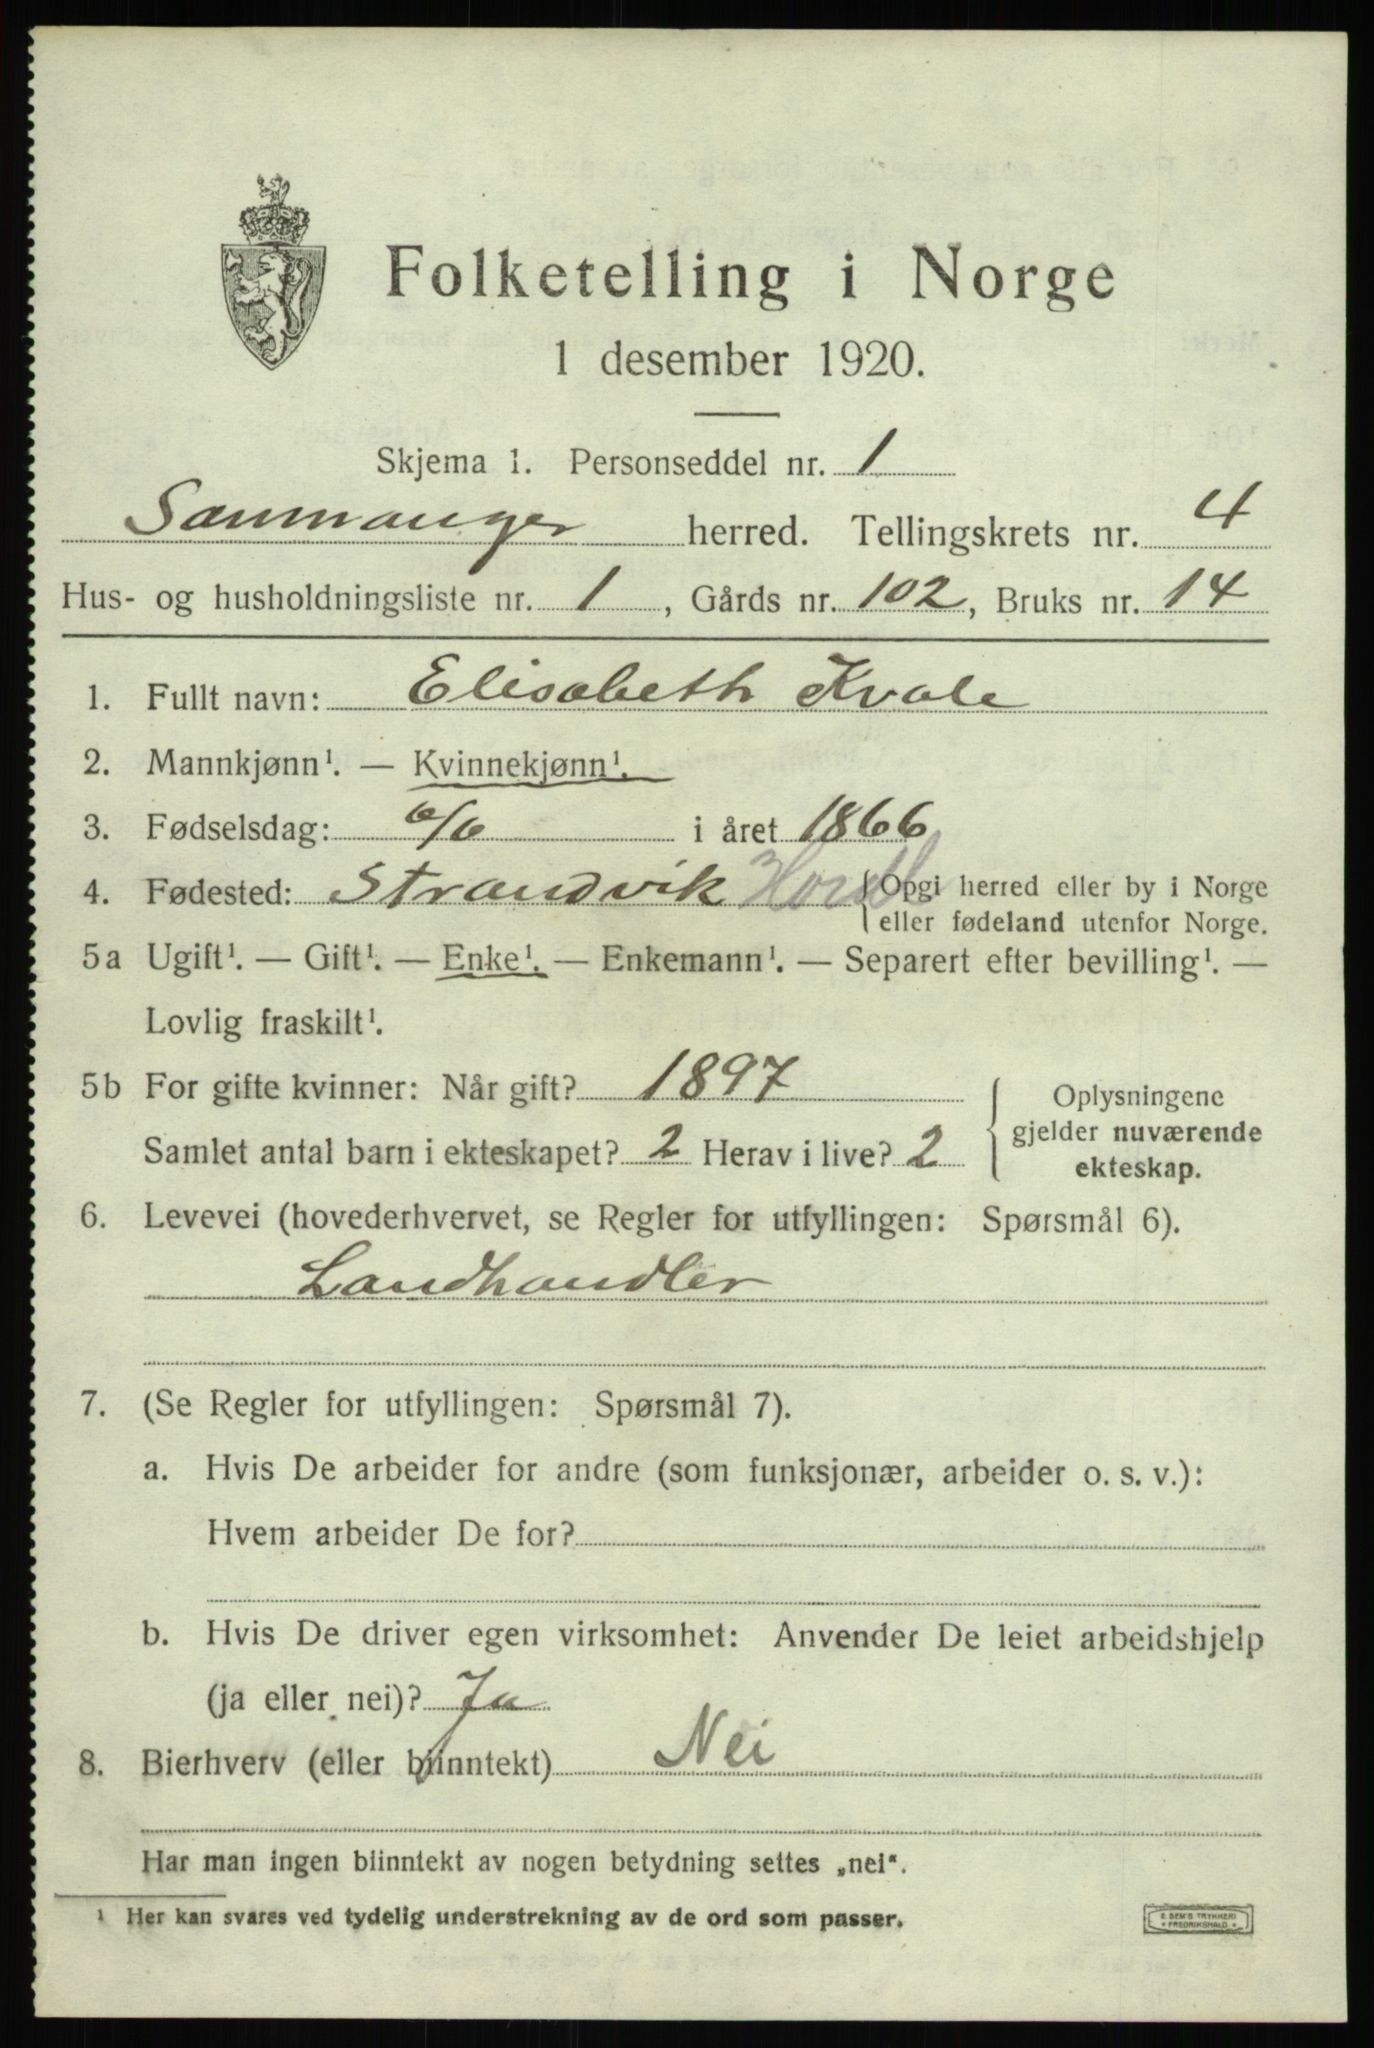 Folketelling i Norge
1 desember 1920.
Skjema 1. Personseddel nr. 1
Samnanger herred. Tellingskrets nr. 4
Hus- og husholdningsliste nr. 1, Gårds nr. 102, Bruks nr. 14
1. Fullt navn: Elisabeth Kvale
2. Mannkjønn¹. — Kvinnekjønn¹.
3. Fødselsdag: 6/6 i året 1866
4. Fødested: Strandvik Hordl {Opgi herred eller by i Norge
eller fødeland utenfor Norge.
5a Ugift¹. — Gift¹. — Enke¹. — Enkemann¹. — Separert efter bevilling¹. —
Lovlig fraskilt¹.
5b For gifte kvinner: Når gift? 1897
Samlet antal barn i ekteskapet? 2 Herav i live? 2
Oplysningene
gjelder nuværende
ekteskap.
6. Levevei (hovederhvervet, se Regler for utfyllingen: Spørsmål 6).
Landhandler
7. (Se Regler for utfyllingen: Spørsmål 7).
a. Hvis De arbeider for andre (som funksjonær, arbeider o. s. v.):
Hvem arbeider De for?
b. Hvis De driver egen virksomhet: Anvender De leiet arbeidshjelp
(ja eller nei)? Ja
8. Bierhverv (eller biinntekt) Nei
Har man ingen biinntekt av nogen betydning settes „nei“.
¹ Her kan svares ved tydelig understrekning av de ord som passer.
E. SEM'S TRYKKERI
* FREDRIKSHALD *